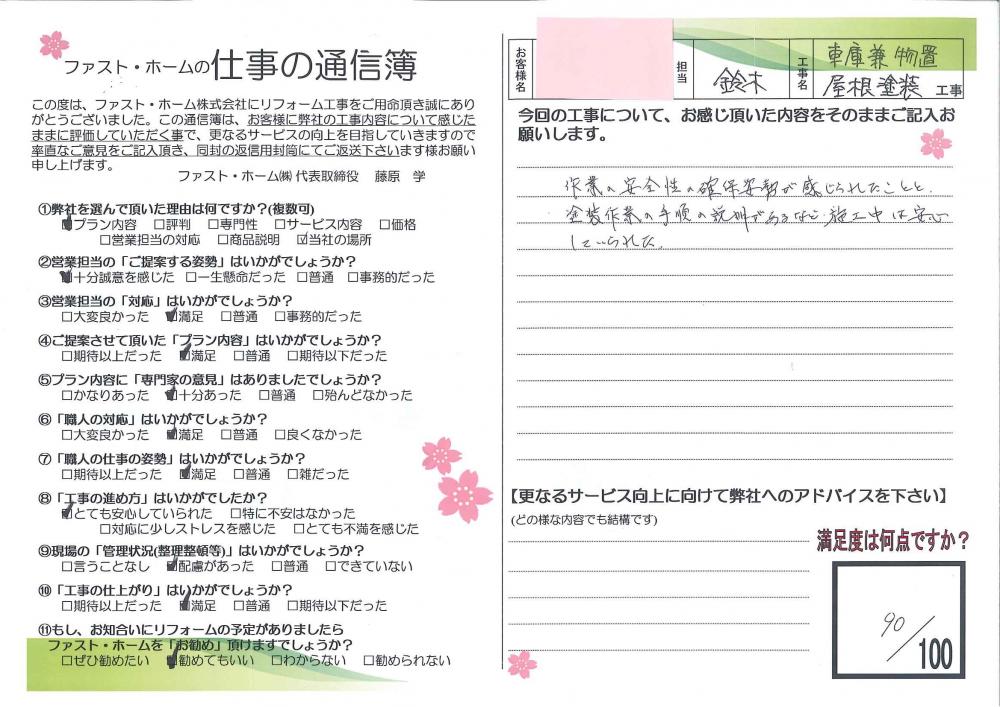 ファスト・ホームの仕事の通信簿
この度は、ファスト・ホーム株式会社にリフォーム工事をご用命頂き誠にあり
がとうございました。この通信簿は、お客様に弊社の工事内容について感じた
ままに評価していただく事で、更なるサービスの向上を目指していきますので
率直なご意見をご記入頂き、同封の返信用封筒にてご返送下さいます様お願い
申し上げます。
ファスト・ホーム㈱ 代表取締役 藤原 学
①弊社を選んで頂いた理由は何ですか?(複数可)
☑プラン内容 □評判 □専門性 □サービス内容 □価格
□営業担当の対応 □商品説明 ☑当社の場所
②営業担当の「ご提案する姿勢」はいかがでしょうか?
☑十分誠意を感じた □一生懸命だった □普通 □事務的だった
③営業担当の「対応」はいかがでしょうか?
□大変良かった ☑満足 □普通 □事務的だった
④ご提案させて頂いた「プラン内容」はいかがでしょうか?
□期待以上だった ☑満足 □普通 □期待以下だった
⑤プラン内容に「専門家の意見」はありましたでしょうか?
□かなりあった ☑十分あった □普通 □殆んどなかった
⑥「職人の対応」はいかがでしょうか?
□大変良かった ☑満足 □普通 □良くなかった
⑦「職人の仕事の姿勢」はいかがでしょうか?
□期待以上だった ☑満足 □普通 □雑だった
⑧「工事の進め方」はいかがでしたか?
☑とても安心していられた □特に不安はなかった
□対応に少しストレスを感じた □とても不満を感じた
⑨現場の「管理状況(整理整頓等)」はいかがでしょうか?
□言うことなし ☑配慮があった □普通 □できていない
⑩「工事の仕上がり」はいかがでしょうか?
□期待以上だった ☑満足 □普通 □期待以下だった
⑪もし、お知合いにリフォームの予定がありましたら
ファスト・ホームを「お勧め」頂けますでしょうか?
□ぜひ勧めたい ☑勧めてもいい □わからない □勧められない
お客様名 担当 鈴木 工事名 車庫兼物置
屋根塗装 工事
今回の工事について、お感じ頂いた内容をそのままご記入お
願いします。
作業の安全性の確保姿勢が感じられたことと、
塗装作業の手順の説明がある 施工中は安心
していられた。
【更なるサービス向上に向けて弊社へのアドバイスを下さい】
(どの様な内容でも結構です)
満足度は何点ですか?
90/100